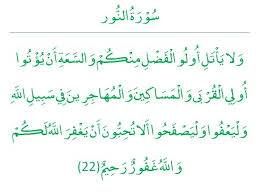 سُورَةُ النُّور
وَلَا يَأْتَلِ أُولُو الْفَضْلِ مِنْكُمْ وَالسَّعَةِ أَنْ يُؤْتُوا
أُولِي الْقُرْبَى وَالْمَسَاكِينَ وَالْمُهَاجِرِينَ فِي سَبِيلِ اللَّهِ
وَلْيَعْفُوا وَلْيَصْفَحُوا أَلَا تُحِبُّونَ أَنْ يَغْفِرَ اللَّهُ لَكُمْ
وَاللَّهُ غَفُورٌ رَحِيمٌ (22)